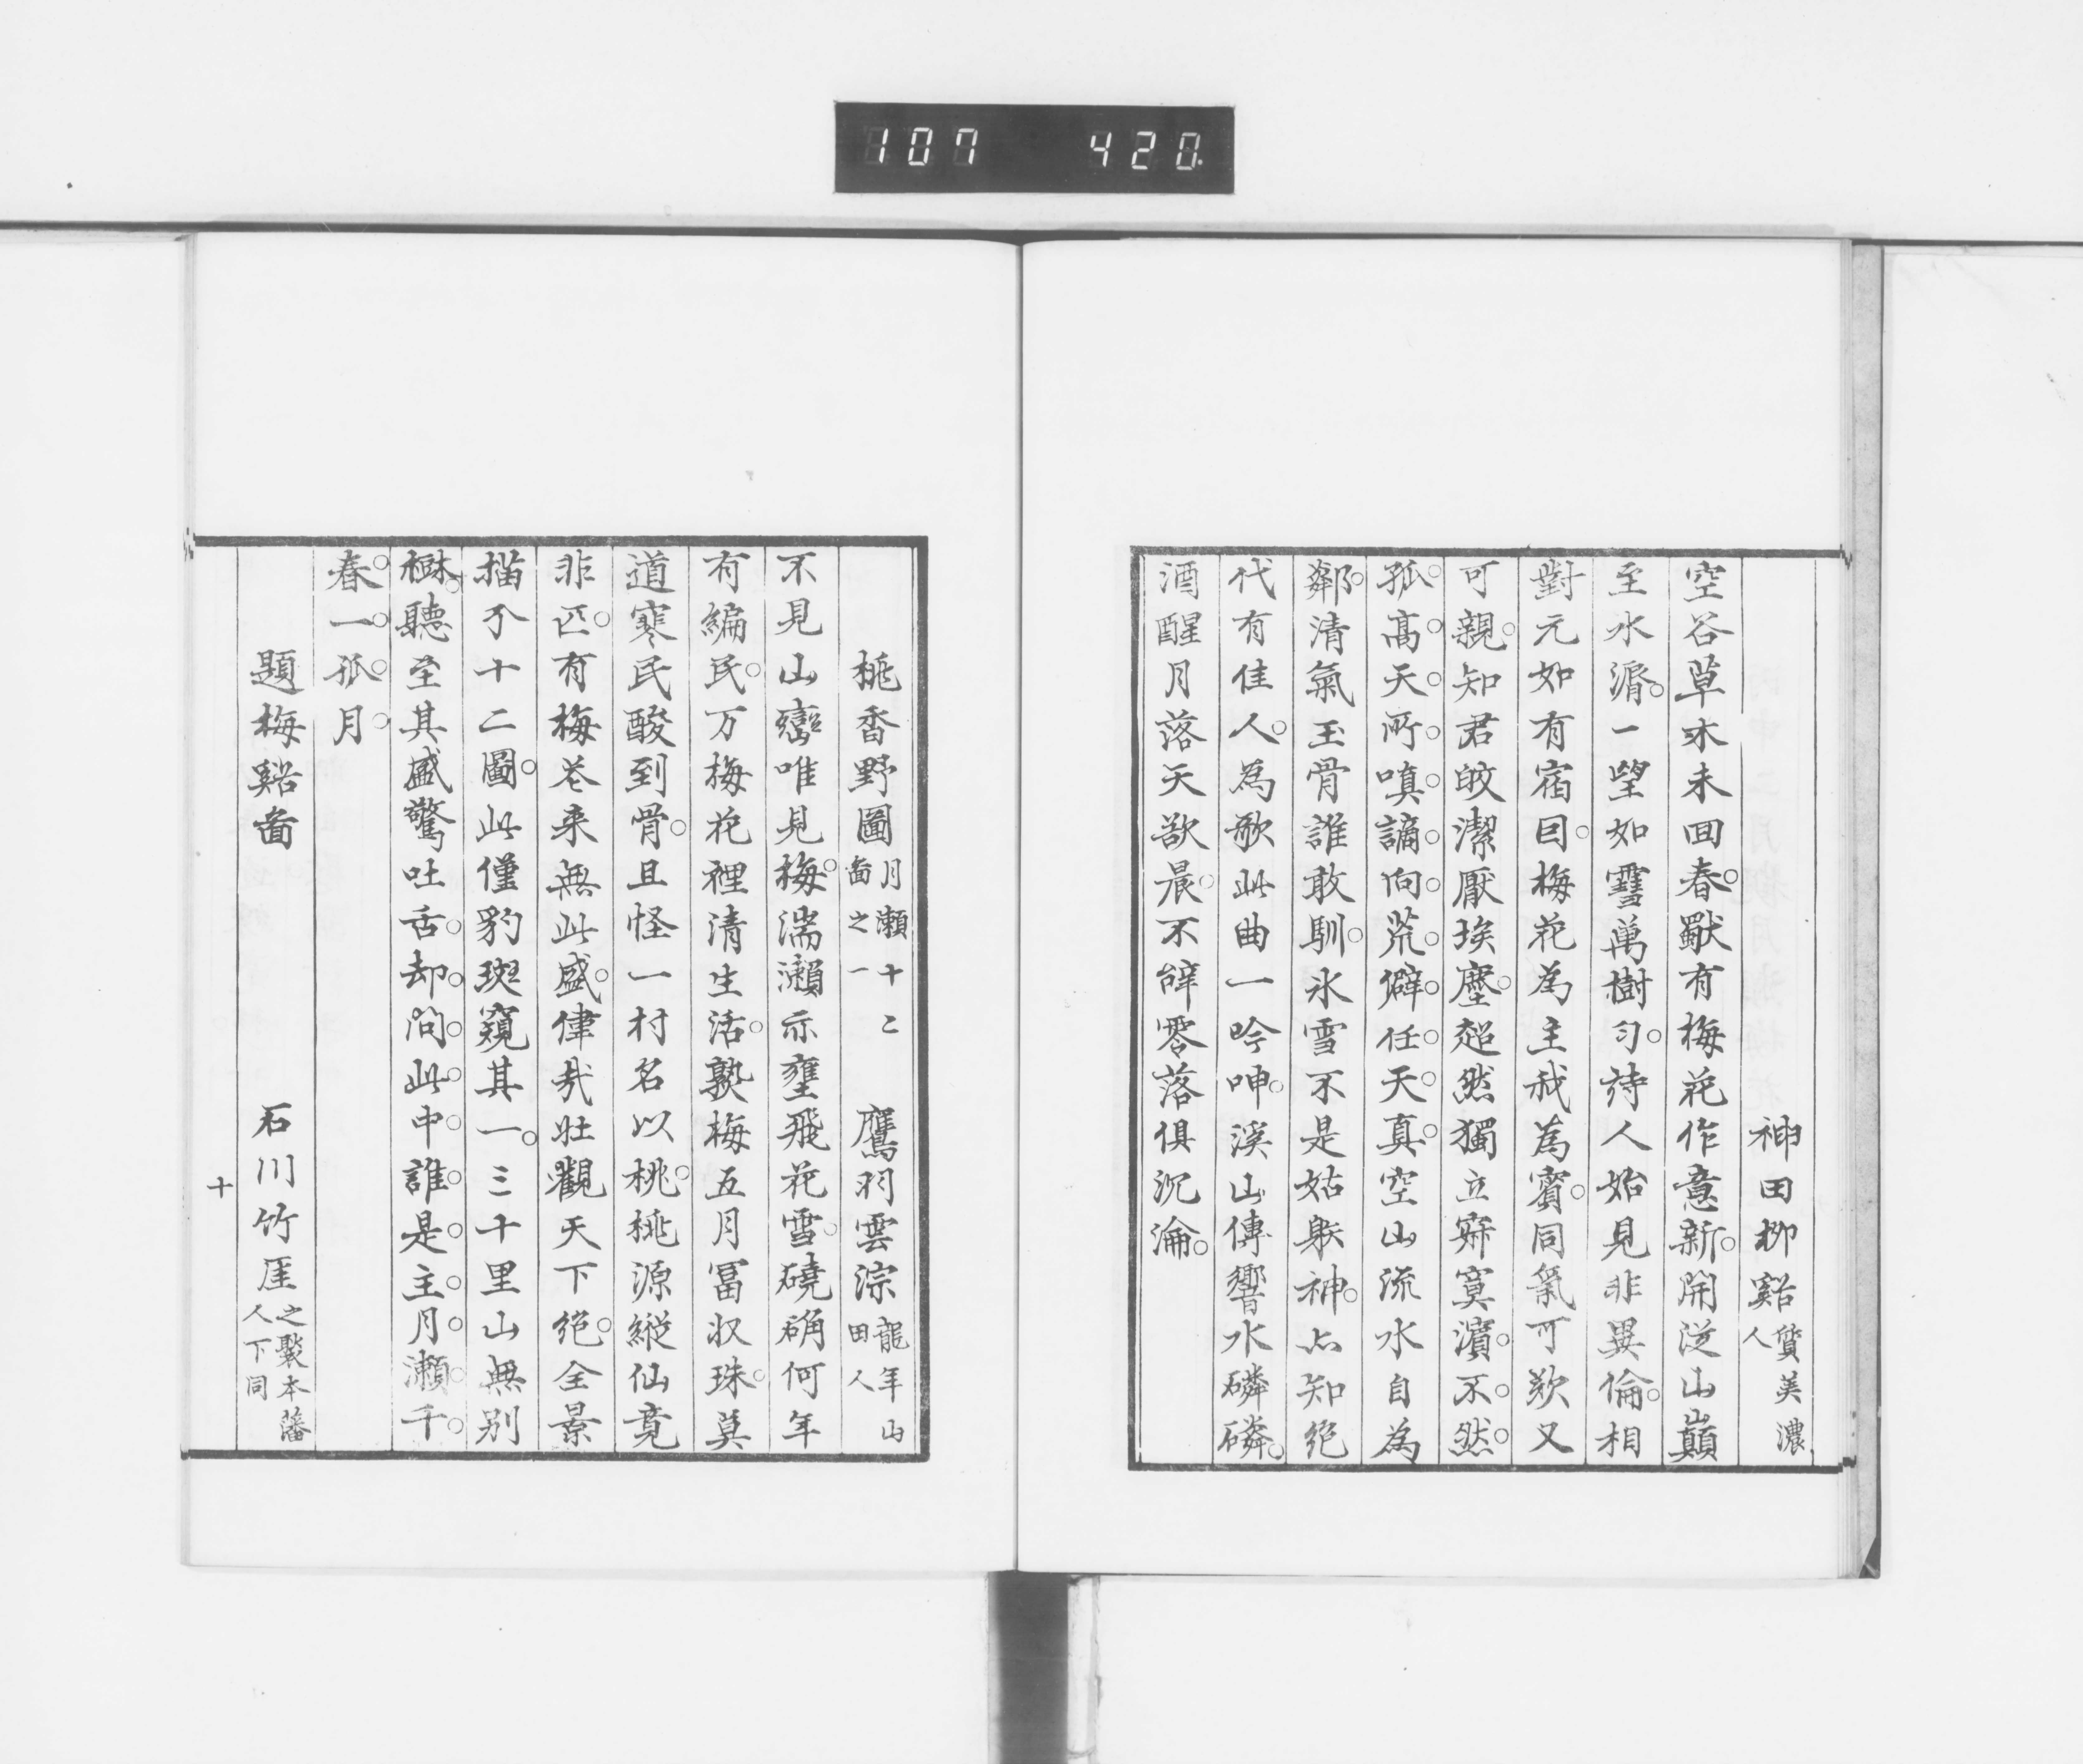 107 420
神田柳谿 貲美濃人
空谷草木未回春獸有梅花作意新開泛山巔
至水漘一望如雪萬樹匀詩人始見非異倫相
對元如有宿因梅花為主我為賓同氣可歎又
可親知君皎潔厭埃塵超然獨立寂寞濱不然
孤高天所嗔謫向荒僻任天真空山流水自為
鄰清氣玉骨誰敢馴氷雪不是姑射神亦知絶
代有佳人為歌此曲一吟呻溪山傳響水磷磷
酒醒月落天欲晨不辭零落俱沉淪
桃香野圖 月瀬十二啚之一 鷹羽雲淙 龍年山田人
不見山巒唯見梅湍瀬亦壅飛花雪磽确何年
有編民万梅花裡清生活熟梅五月冨収珠莫
道寒民酸到骨且怪一村名以桃桃源縦仙竟
非匹有梅花来無此盛偉哉壮觀天下絶全景
描介十二圖此僅豹斑窺其一三千里山無别
樹聽至其盛驚吐舌却問此中誰是主月瀬千
春一孤月
題梅谿啚 石川竹厓 之褧本藩人下同
十